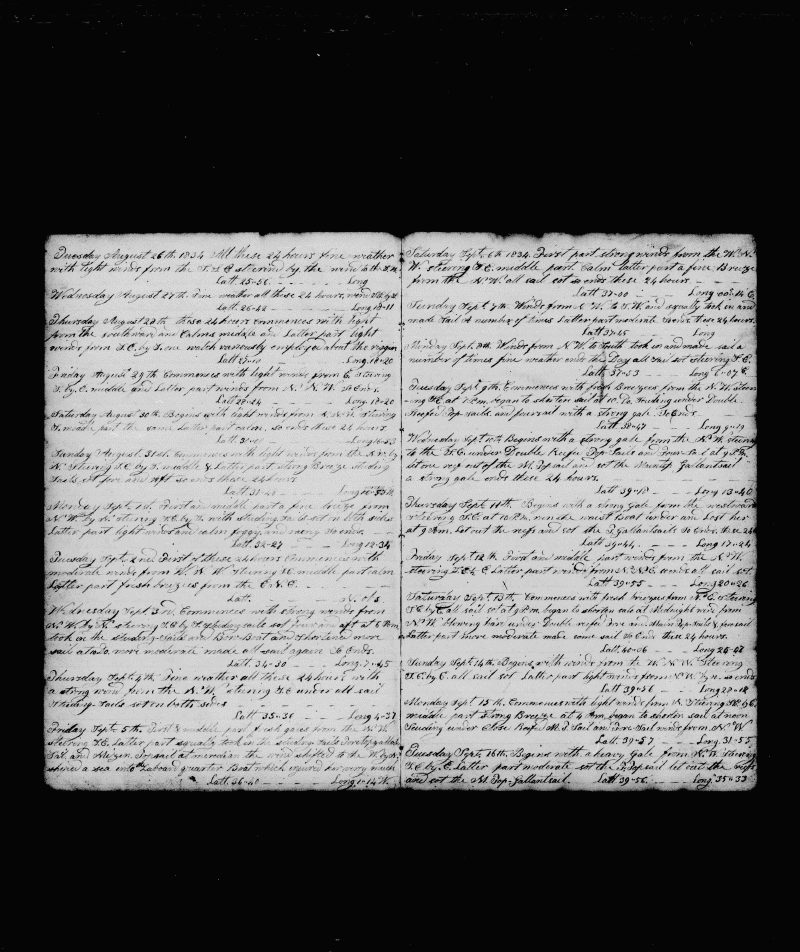 Tuesday August 26th 1834 All these 24 hours fine weather
with light winds from the S. E. & steered by the wind
Latt. 25-56 Long
Wednesday August 27th Fine weather all these 24 hours, wind
Latt 26-42 Long 19-11
Thursday August 28th these 24 hours commences with light
from the southward and Calms middle and Latter part light
winds from S.E. by S. one watch variously employed about the riggin
Long 18-20
Friday August 29th Commences with light winds from E. Steering
S. by E. middle and Latter part winds from N. N. W. So Ends.
Latt Long
Saturday August 30th Begins with light winds from N. N. W. Steering
S. middle part the same Latter part calm, so ends these 24 hours
Latt Long
Sunday August 31st. Commences with light winds from the N. W. by
N. Steering S.E. by S. middle & Latter part strong Breeze studing
Sails set fore and aft so ends these 24 hours
Latt 31-41 Long
Monday Sept. 1st. First and middle part a fine breeze from
N.W. by N. Steering S.E. by S. with studing Sails set on both sides
Latter part light winds and calm foggy and rainy So ends
Latt. 32-27 Long 12-34
Tuesday Sept. 2nd First of these 24 hours Commences with
moderate winds from W. N. W. Steering S.E. middle part calm
Latter part fresh breezes from the E.N.E.
Lat. No. obs
Wednesday Sept 3rd. Commences with strong winds from
N. W. by N. steering S.E. by S. studing sails set fore and aft at 6 P.m.
took in the studing-Sails and Bow Boat and Shortened more
sail at more moderate made all sail again So Ends
Latt. 34-30 Long. 7-45
Thursday Sept. 4th Fine weather all these 24 hours with
a strong wind from the N. W. steering S.E. under all sail
Studing-Sails set on both sides
Latt 35-35 Long 4-37
Friday Sept. 5th. First & middle part fresh gales from the N. W.
steering S.E. Latter part squally took in the studing sails gallant
Sail and Mizen Top sail at meridian the wind shifted to the W. by N.
shiped a sea into Labord quarter Boat which injured her very much
Latt. 36-40 Long 1-14
Saturday Sept. 6th 1834. First part strong winds from the W. N.
W. steering S.E. middle part Calm latter part a fine Breeze
from the N. W. all sail set so ends these 24 hours
Latt 37-00 Long 00-14 E.
Sunday Sept. 7th. Winds from N. W. to S. W. and squally took in and
made Sail A number of times Latter part moderate So ends these 24 hours.
Latt 37-45 Long
Monday Sept. 8th. Winds from N. W. to South took in and made sail a
number of times fine weather ends this Day all sail set steering S.E.
Latt. 37-53 Long 6-07 E.
Tuesday Sept. 9th. Commences with fresh Breezes from the N. W. steer-
ing S.E. at P.m. began to shorten sail at 10 Do. scuding under Double
Reefed Top-sails and foursail with a strong gale So Ends
Latt. 38-47 Long 9-19
Wednesday Sept 10th Begins with a strong gale from the N. W. steering
to the S.E. under Double Reefed Top Sails and Four-Sail at 9
set one reef out of the M. Top sail and set the Main Gallantsail
a strong gale ends these 24 hours.
Latt 39-18 Long 13-40
Thursday Sept. 11th. Begins with a strong gale from the westward
Steering S.E. at 10 P.m. run the waist Boat under and Lost her
at 9 Am. Let out the reefs and set the T. Gallantsails So Ends these 24
Latt. 39-44. Long 17-24
Friday Sept. 12th First and middle part winds from the N. W.
steering S.E. Latter part winds from N.N.E. ends all sail set.
Latt. 39-55 Long 20-26
Saturday Sept. 13th. Commences with fresh breezes from N. E. steering
S.E. by E. all sail set at 9 P.m. began to shorten sail at Midnight wind from
N. W. blowing hard under Double reefed Fore and Main Top-Sails & foresail
Latter part more moderate made some sail So Ends these 24 hours.
Latt. 40-06 Long 25-02
Sunday Sept. 14th. Begins with winds from the W. N. W. Steering
S.E. by E. all sail set Latter part light winds from N.W. by N. so ends
Latt 39-56 Long 29-18
Monday Sept 15th. Commences with light winds from N. Steering
middle part Strong Breeze at 4 Am. began to shorten sail at noon
Scuding under Close Reefed M. T. Sail and Fore-Sail winds from N. W.
Latt. 39-57 Long. 31-55
Tuesday Sept. 16th. Begins with a heavy Gale from N. W. Steering
S.E. by E. Latter part moderate set the F. Top sail let out the reefs
and set the M. Top-Gallantsail Latt 39-56 Long. 35-33